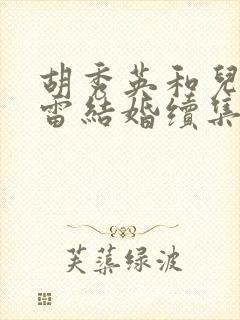 胡秀英和兒
雷結婚續集
芙蕖绿波